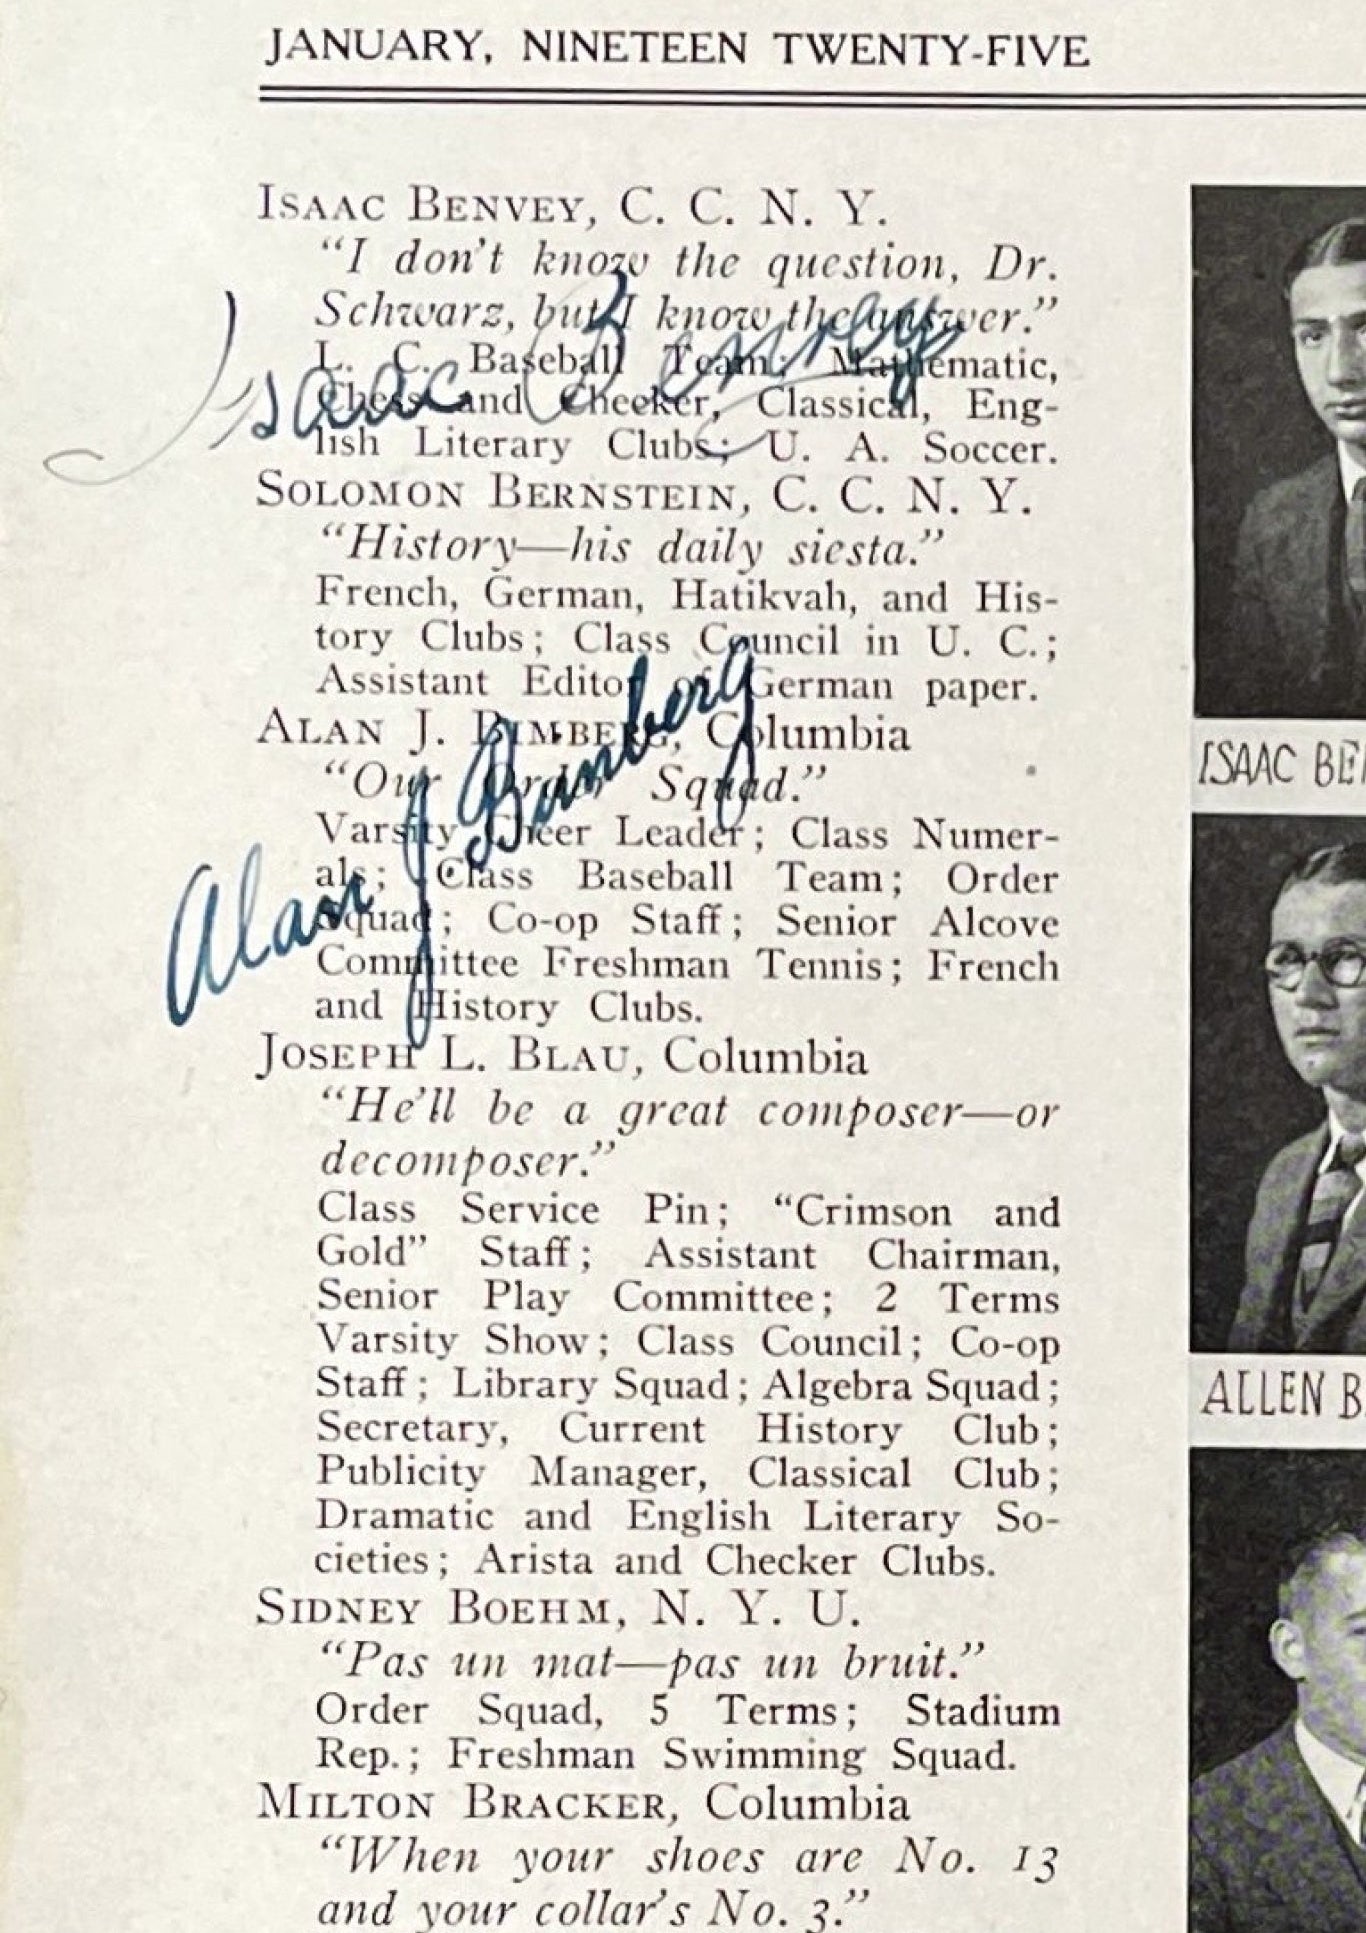 JANUARY, NINETEEN TWENTY-FIVE
ISAAC BENVEY, C. C. N. Y.
"I don't know the question, Dr.
Schwarz, but I know the answer."
L. C. Baseball Team; Mathematic,
Chess and Checker, Classical, Eng-
lish Literary Clubs; U. A. Soccer.
Isaac Benvey
SOLOMON BERNSTEIN, C. C. N. Y.
"History—his daily siesta."
French, German, Hatikvah, and His-
tory Clubs; Class Council in U. C.;
Assistant Editor of German paper.
ALAN J. BIMBERG, Columbia
"Our Order Squad."
Varsity Cheer Leader; Class Numer-
als; Class Baseball Team; Order
Squad; Co-op Staff; Senior Alcove
Committee Freshman Tennis; French
and History Clubs.
Alan J Bimberg
JOSEPH L. BLAU, Columbia
"He'll be a great composer—or
decomposer."
Class Service Pin; "Crimson and
Gold" Staff; Assistant Chairman,
Senior Play Committee; 2 Terms
Varsity Show; Class Council; Co-op
Staff; Library Squad; Algebra Squad;
Secretary, Current History Club;
Publicity Manager, Classical Club;
Dramatic and English Literary So-
cieties; Arista and Checker Clubs.
SIDNEY BOEHM, N. Y. U.
"Pas un mat—pas un bruit."
Order Squad, 5 Terms; Stadium
Rep.; Freshman Swimming Squad.
MILTON BRACKER, Columbia
"When your shoes are No. 13
and your collar's No. 3."
ISAAC BE
ALLEN B